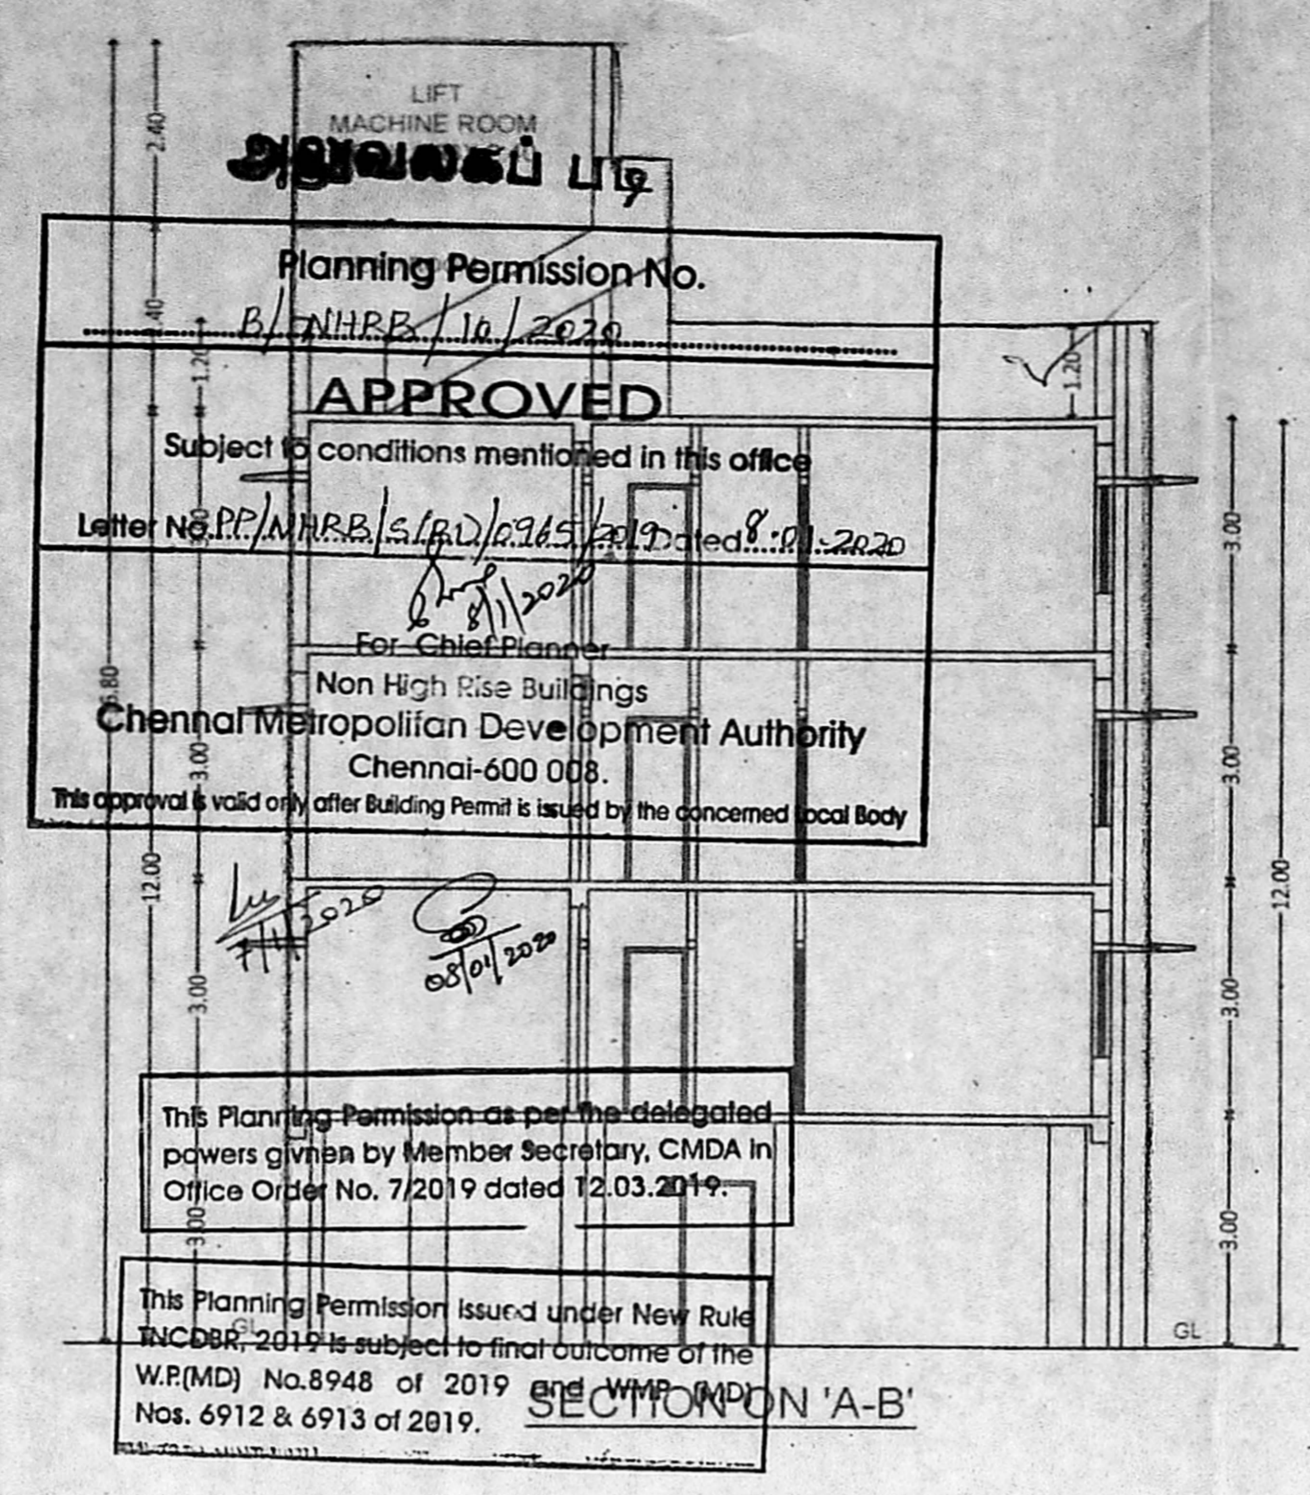 LIFT
MACHINE ROOM
அலுவலகப் படி
Planning Permission No.
B/ NHRB / 10 / 2020
APPROVED
Subject to conditions mentioned in this office
Letter No. PP/NHRB/S(B1)/0965/2019 Dated 8.01.2020
8/1/2020
For Chief Planner
Non High Rise Buildings
Chennai Metropolitan Development Authority
Chennai-600 008.
This approval is valid only after Building Permit is issued by the concerned Local Body
7/1/2020
08/01/2020
This Planning Permission as per the delegated
powers givnen by Member Secretary, CMDA in
Office Order No. 7/2019 dated 12.03.2019.
This Planning Permission issued under New Rule
TNCDBR, 2019 is subject to final outcome of the
W.P.(MD) No.8948 of 2019 and WMP (MD)
Nos. 6912 & 6913 of 2019.
SECTION ON 'A-B'
GL
GL
2.40
.40
1.20
3.00
3.00
3.00
12.00
6.80
1.20
3.00
3.00
3.00
3.00
12.00